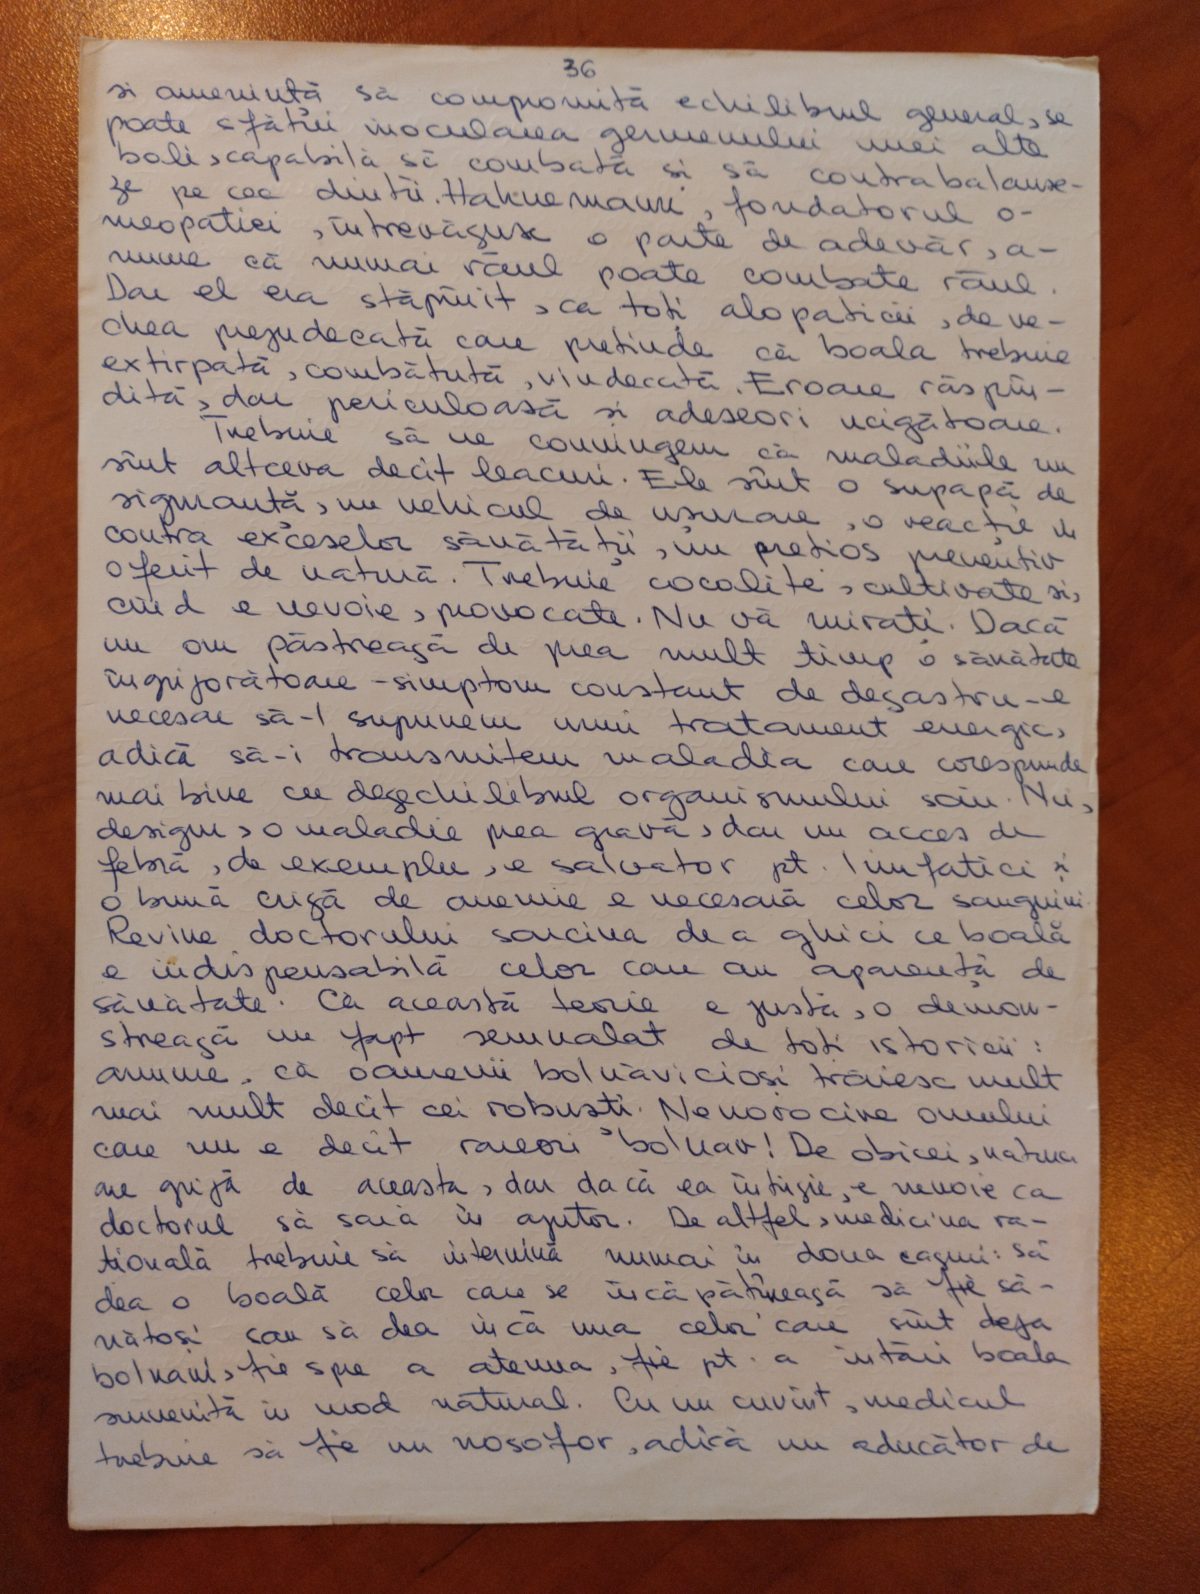 36
si amenință să compromită echilibrul general, se
poate sfătui inocularea germenului unei alte
boli, capabilă să combată și să contrabalanse-
ze pe cea dintîi. Hahnemann, fondatorul o-
meopatiei, întrevăzuse o parte de adevăr, a-
nume că numai răul poate combate răul.
Dar el era stăpînit, ca toți alopaticii, de ve-
chea prejudecată care pretinde că boala trebuie
extirpată, combătută, vindecată. Eroare răspîn-
dită, dar periculoasă și adeseori ucigătoare.
Trebuie să ne convingem că maladiile nu
sînt altceva decît leacuri. Ele sînt o supapă de
siguranță, un vehicul de ușurare, o reacție în
contra exceselor sănătății, un prețios preventiv
oferit de natură. Trebuie cocolite, cultivate și,
cînd e nevoie, provocate. Nu vă mirați. Dacă
un om păstrează de prea mult timp o sănătate
îngrijorătoare - simptom constant de dezastru - e
necesar să-l supunem unui tratament energic,
adică să-i transmitem maladia care corespunde
mai bine cu dezechilibrul organismului său. Nu,
desigur, o maladie prea gravă, dar un acces de
febră, de exemplu, e salvator pt. limfatici și
o bună criză de anemie e necesară celor sanguini.
Revine doctorului sarcina de a ghici ce boală
e indispensabilă celor care au aparență de
sănătate. Că această teorie e justă, o demon-
strează un fapt semnalat de toți istoricii:
anume, că oamenii bolnăvicioși trăiesc mult
mai mult decît cei robusti. Nenorocire omului
care nu e decît rareori bolnav! De obicei, natura
are grijă de aceasta, dar dacă ea întîrzie, e nevoie ca
doctorul să sară în ajutor. De altfel, medicina ra-
țională trebuie să intervină numai în doua cazuri: să
dea o boală celor care se încăpățînează să fie să-
nătoși sau să dea încă una celor care sînt deja
bolnavi, fie spre a atenua, fie pt. a întări boala
survenită în mod natural. Cu un cuvînt, medicul
trebuie să fie un nosofor, adică un aducător de